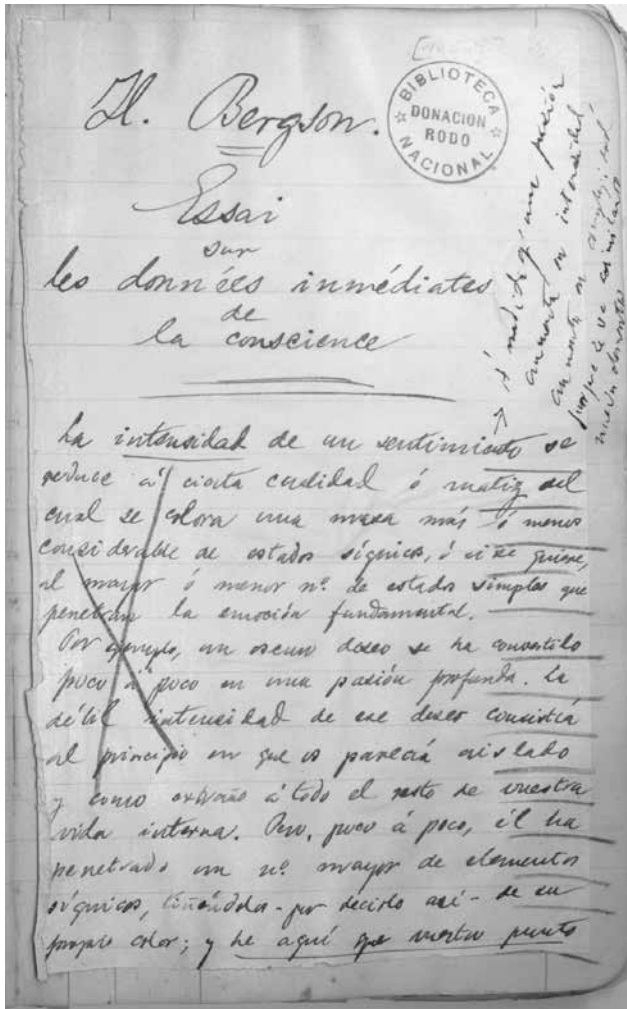 H. Bergson.
BIBLIOTECA
DONACION
RODO
NACIONAL
Essai
sur
les données inmédiates
de
la conscience
á medida q' una pasión
aumenta en intensidad
aumenta en complejidad
porque va asimilando
nuevos elementos
La intensidad de un sentimiento se
reduce á cierta cualidad ó matiz del
cual se colora una masa más ó menos
considerable de estados síquicos, ó si se quiere,
al mayor ó menor nº. de estados simples que
penetran la emoción fundamental.
Por ejemplo, un oscuro deseo se ha convertido
poco á poco en una pasión profunda. La
débil intensidad de ese deseo consistía
al principio en que os parecía aislado
y como extraño á todo el resto de vuestra
vida interna. Pero, poco á poco, él ha
penetrado un nº. mayor de elementos
síquicos, tiñéndolos - por decirlo así - de su
propio color; y he aquí que vuestro punto